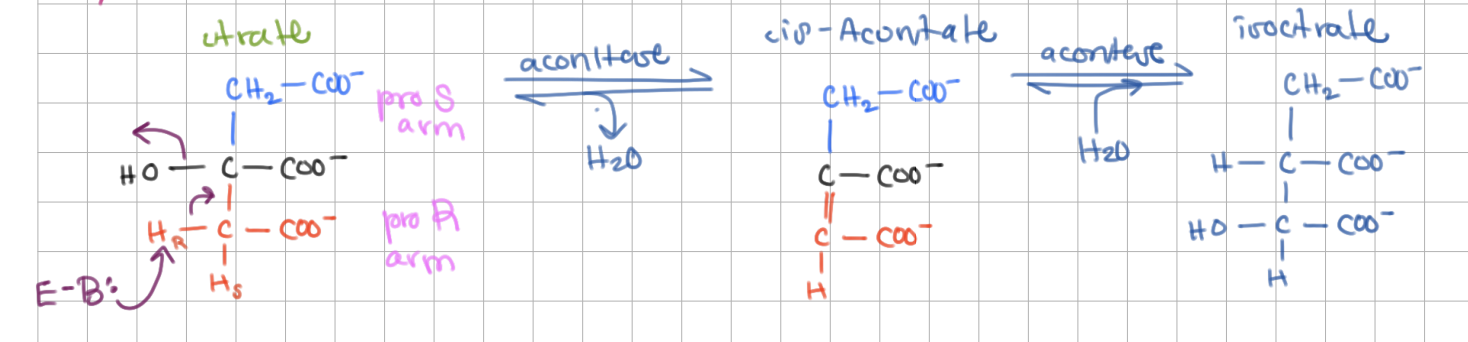 citrate
CH₂—COO⁻
pro S
arm
HO—C—COO⁻
H_R—C—COO⁻
pro R
arm
H_S
E-B:
aconitase
H₂O
cis-Aconitate
CH₂—COO⁻
C—COO⁻
C—COO⁻
H
aconitase
H₂O
isocitrate
CH₂—COO⁻
H—C—COO⁻
HO—C—COO⁻
H